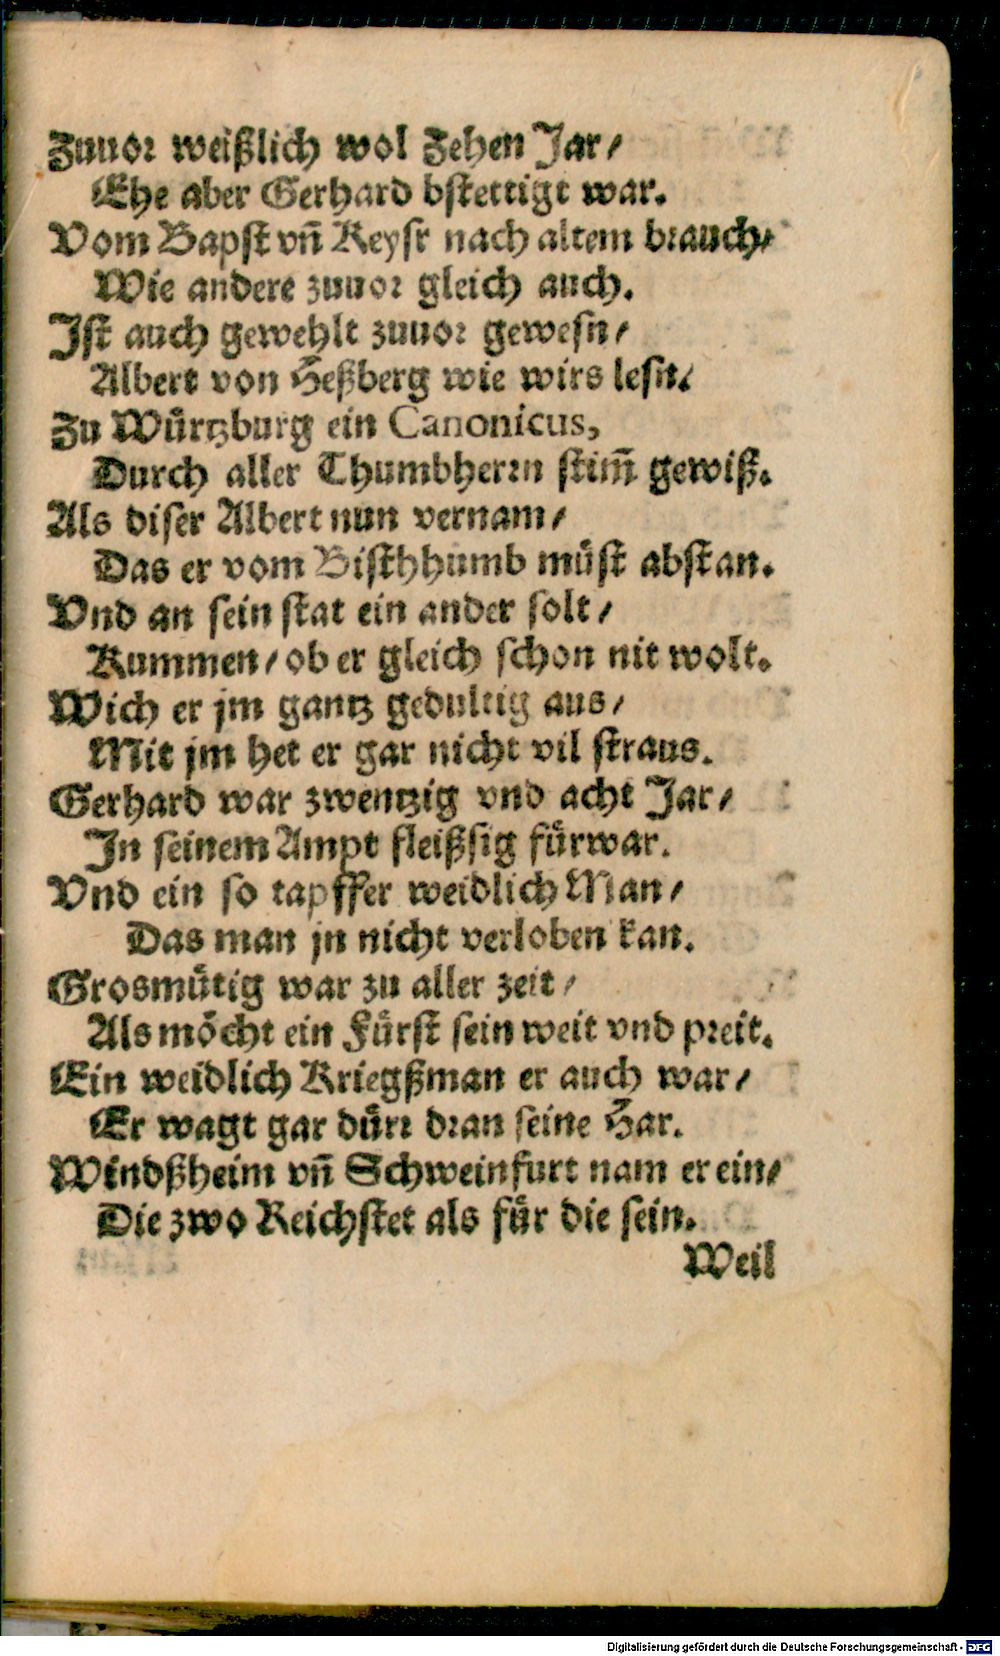 Zuuor weißlich wol Zehen Jar/
Ehe aber Gerhard bstettigt war.
Vom Bapst vn̄ Keysr nach altem brauch/
Wie andere zuuor gleich auch.
Ist auch gewehlt zuuor gewesn/
Albert von Heßberg wie wirs lesn/
Zu Wuͤrtzburg ein Canonicus,
Durch aller Thumbherrn stim̄ gewiß.
Als diser Albert nun vernam/
Das er vom Bisthhumb muͤst abstan.
Vnd an sein stat ein ander solt/
Kummen/ ob er gleich schon nit wolt.
Wich er jm gantz gedultig aus/
Mit jm het er gar nicht vil straus.
Gerhard war zwentzig vnd acht Jar/
In seinem Ampt fleißsig fuͤrwar.
Vnd ein so tapffer weidlich Man/
Das man jn nicht verloben kan.
Grosmuͤtig war zu aller zeit/
Als moͤcht ein Fuͤrst sein weit vnd preit.
Ein weidlich Kriegßman er auch war/
Er wagt gar duͤrr dran seine Har.
Windßheim vn̄ Schweinfurt nam er ein/
Die zwo Reichstet als fuͤr die sein.
Weil
Digitalisierung gefördert durch die Deutsche Forschungsgemeinschaft - DFG